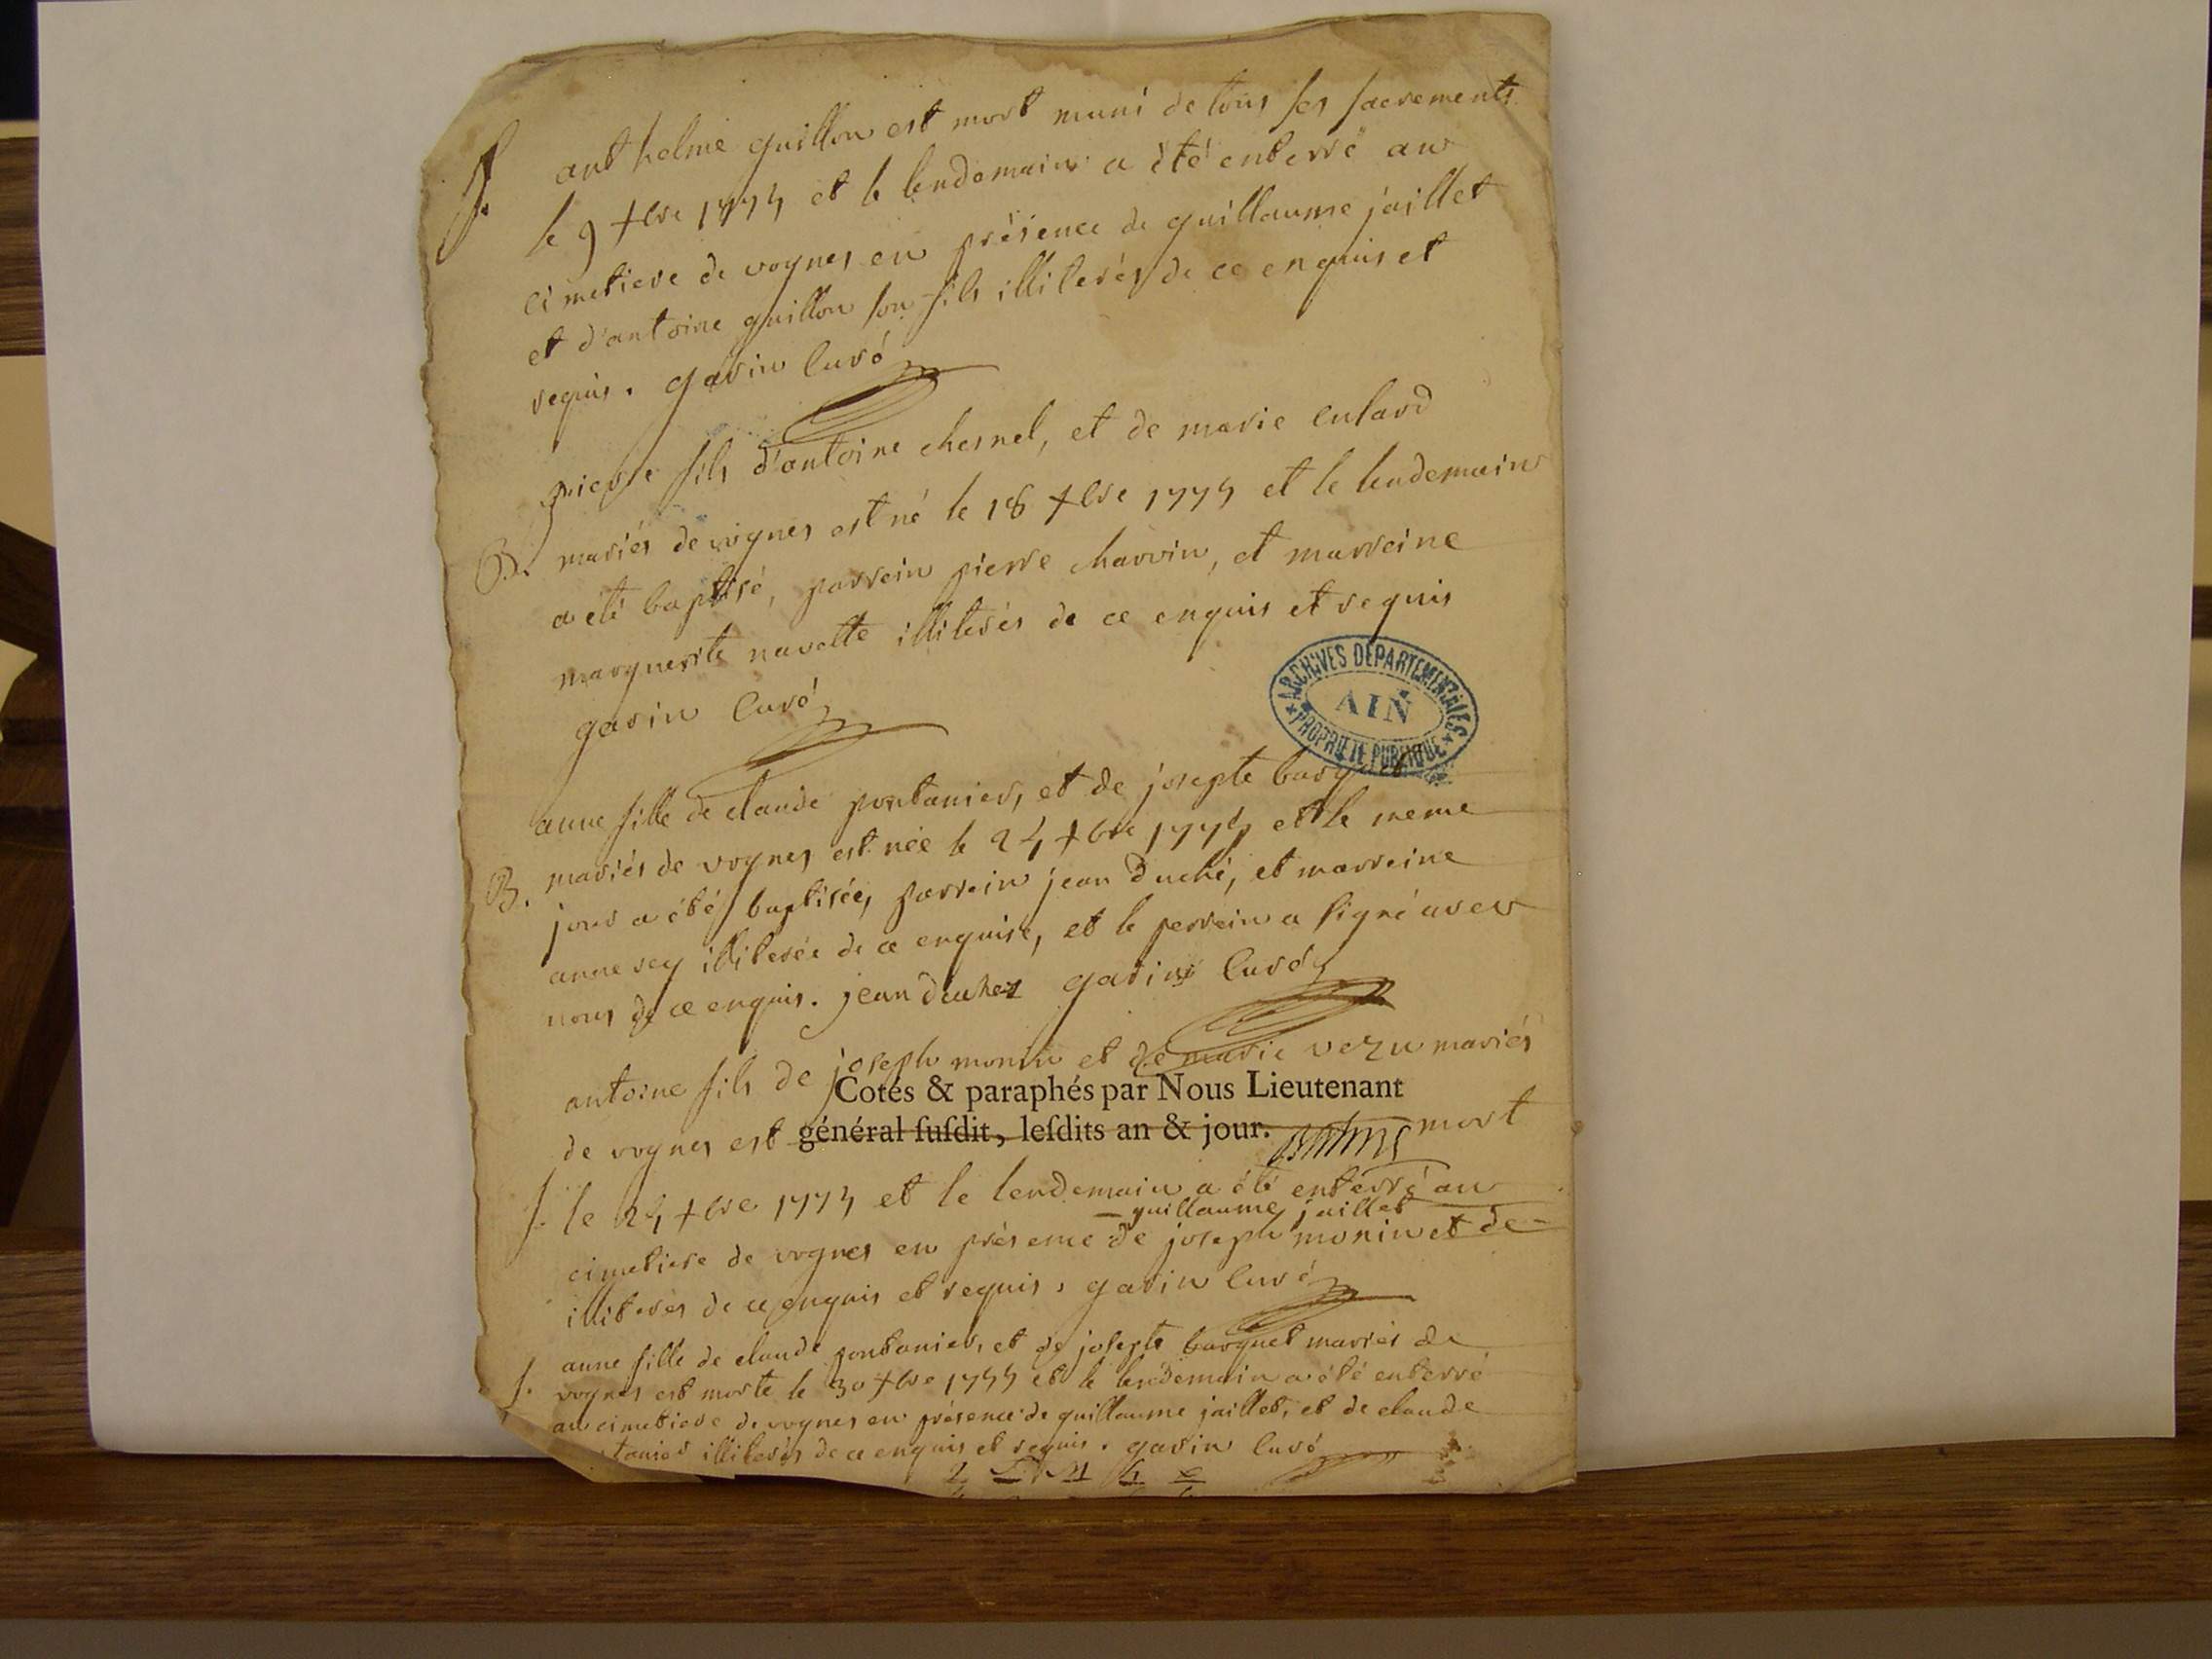 S. anthelme guillon est mort muni de tous ses sacrements
le 9 xbre 1774 et le lendemain a été enterré au
cimetiere de vognes en présence de guillaume jaillet
et d'antoine guillon son fils illiterés de ce enquis et
requis. gavin Curé
pierre fils d'antoine chesnel, et de marie
B. mariés de vognes est né le 18 xbre 1774 et le lendemain
a été baptisé, parrein pierre charvin, et marreine
marguerite navette illiterés de ce enquis et requis
gavin Curé
ARCHIVES DEPARTEMENTALES
AIN
PROPRIETE PUBLIQUE
anne fille de claude pontanier, et de josepte barquet
B. mariés de vognes est née le 24 xbre 1774 et le meme
jour a été baptisée, parrein jean duché, et marreine
anne rey illiterée de ce enquise, et le perrein a signé avec
nous de ce enquis. jean duchez gavin Curé
antoine fils de joseph monin et de marie vezu mariés
Cotés & paraphés par Nous Lieutenant
de vognes est général susdit, lesdits an & jour. mort
S. le 24 xbre 1774 et le lendemain a été enterré au
guillaume jaillet
cimetiere de vognes en présence de joseph monin et de
illiterés de ce enquis et requis. gavin Curé
anne fille de claude pontanier, et de josepte barquet mariés de
S. vognes est morte le 30 xbre 1774 et le lendemain a été enterré
au cimetiere de vognes en présence de guillaume jaillet, et de claude
tanier illiterés de ce enquis et requis. gavin Curé